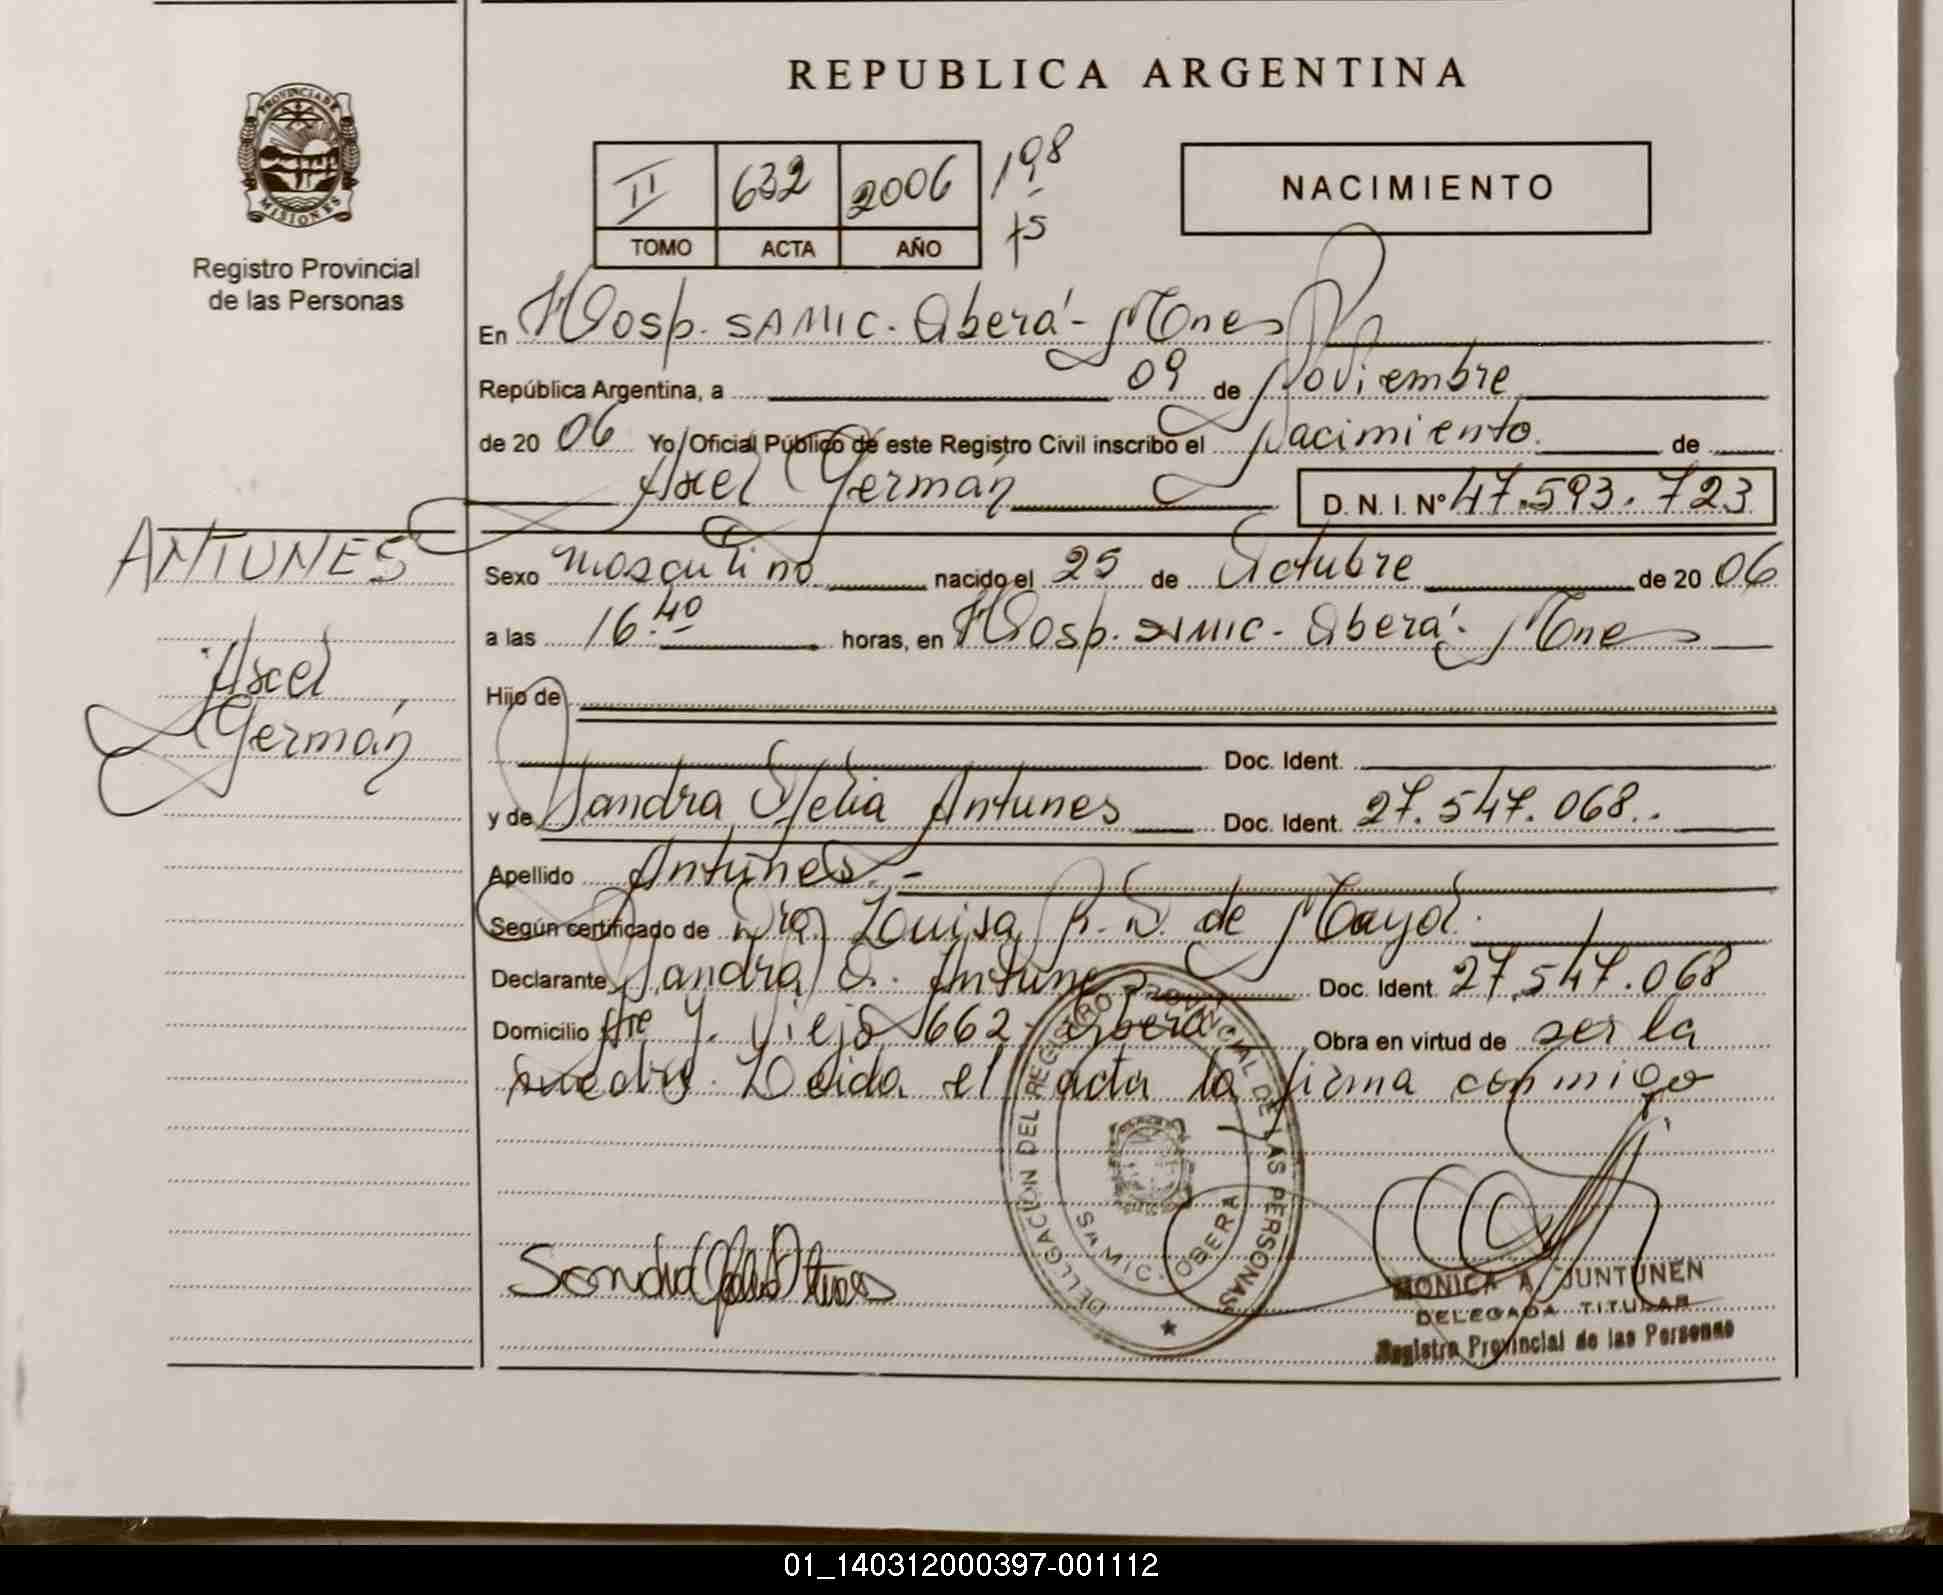 REPUBLICA ARGENTINA
PROVINCIA DE MISIONES
Registro Provincial
de las Personas
II 632 2006 198
TOMO ACTA AÑO
NACIMIENTO
En Hosp. SAMIC. Oberá - Mnes
República Argentina, a 09 de Noviembre
de 20 06 Yo, Oficial Público de este Registro Civil inscribo el Nacimiento. de
Axel Germán D. N. I. Nº 47.593.723
ANTUNES
Axel
Germán
Sexo masculino nacido el 25 de Octubre de 20 06
a las 16.40 horas, en Hosp. SAMIC - Oberá - Mnes
Hijo de
Doc. Ident.
y de Sandra Ofelia Antunes Doc. Ident. 27.547.068.
Apellido Antunes. -
Según certificado de Dra Louisa R. D. de Mayol.
Declarante Sandra O. Antunes Doc. Ident. 27.547.068
Domicilio Viejo 662 - Oberá Obra en virtud de ser la
madre. Leida el acta la firma conmigo
DELEGACION DEL REGISTRO PROVINCIAL DE LAS PERSONAS
SAMIC. OBERA
MONICA A. JUNTUNEN
DELEGADA TITULAR
Registro Provincial de las Personas
01_140312000397-001112